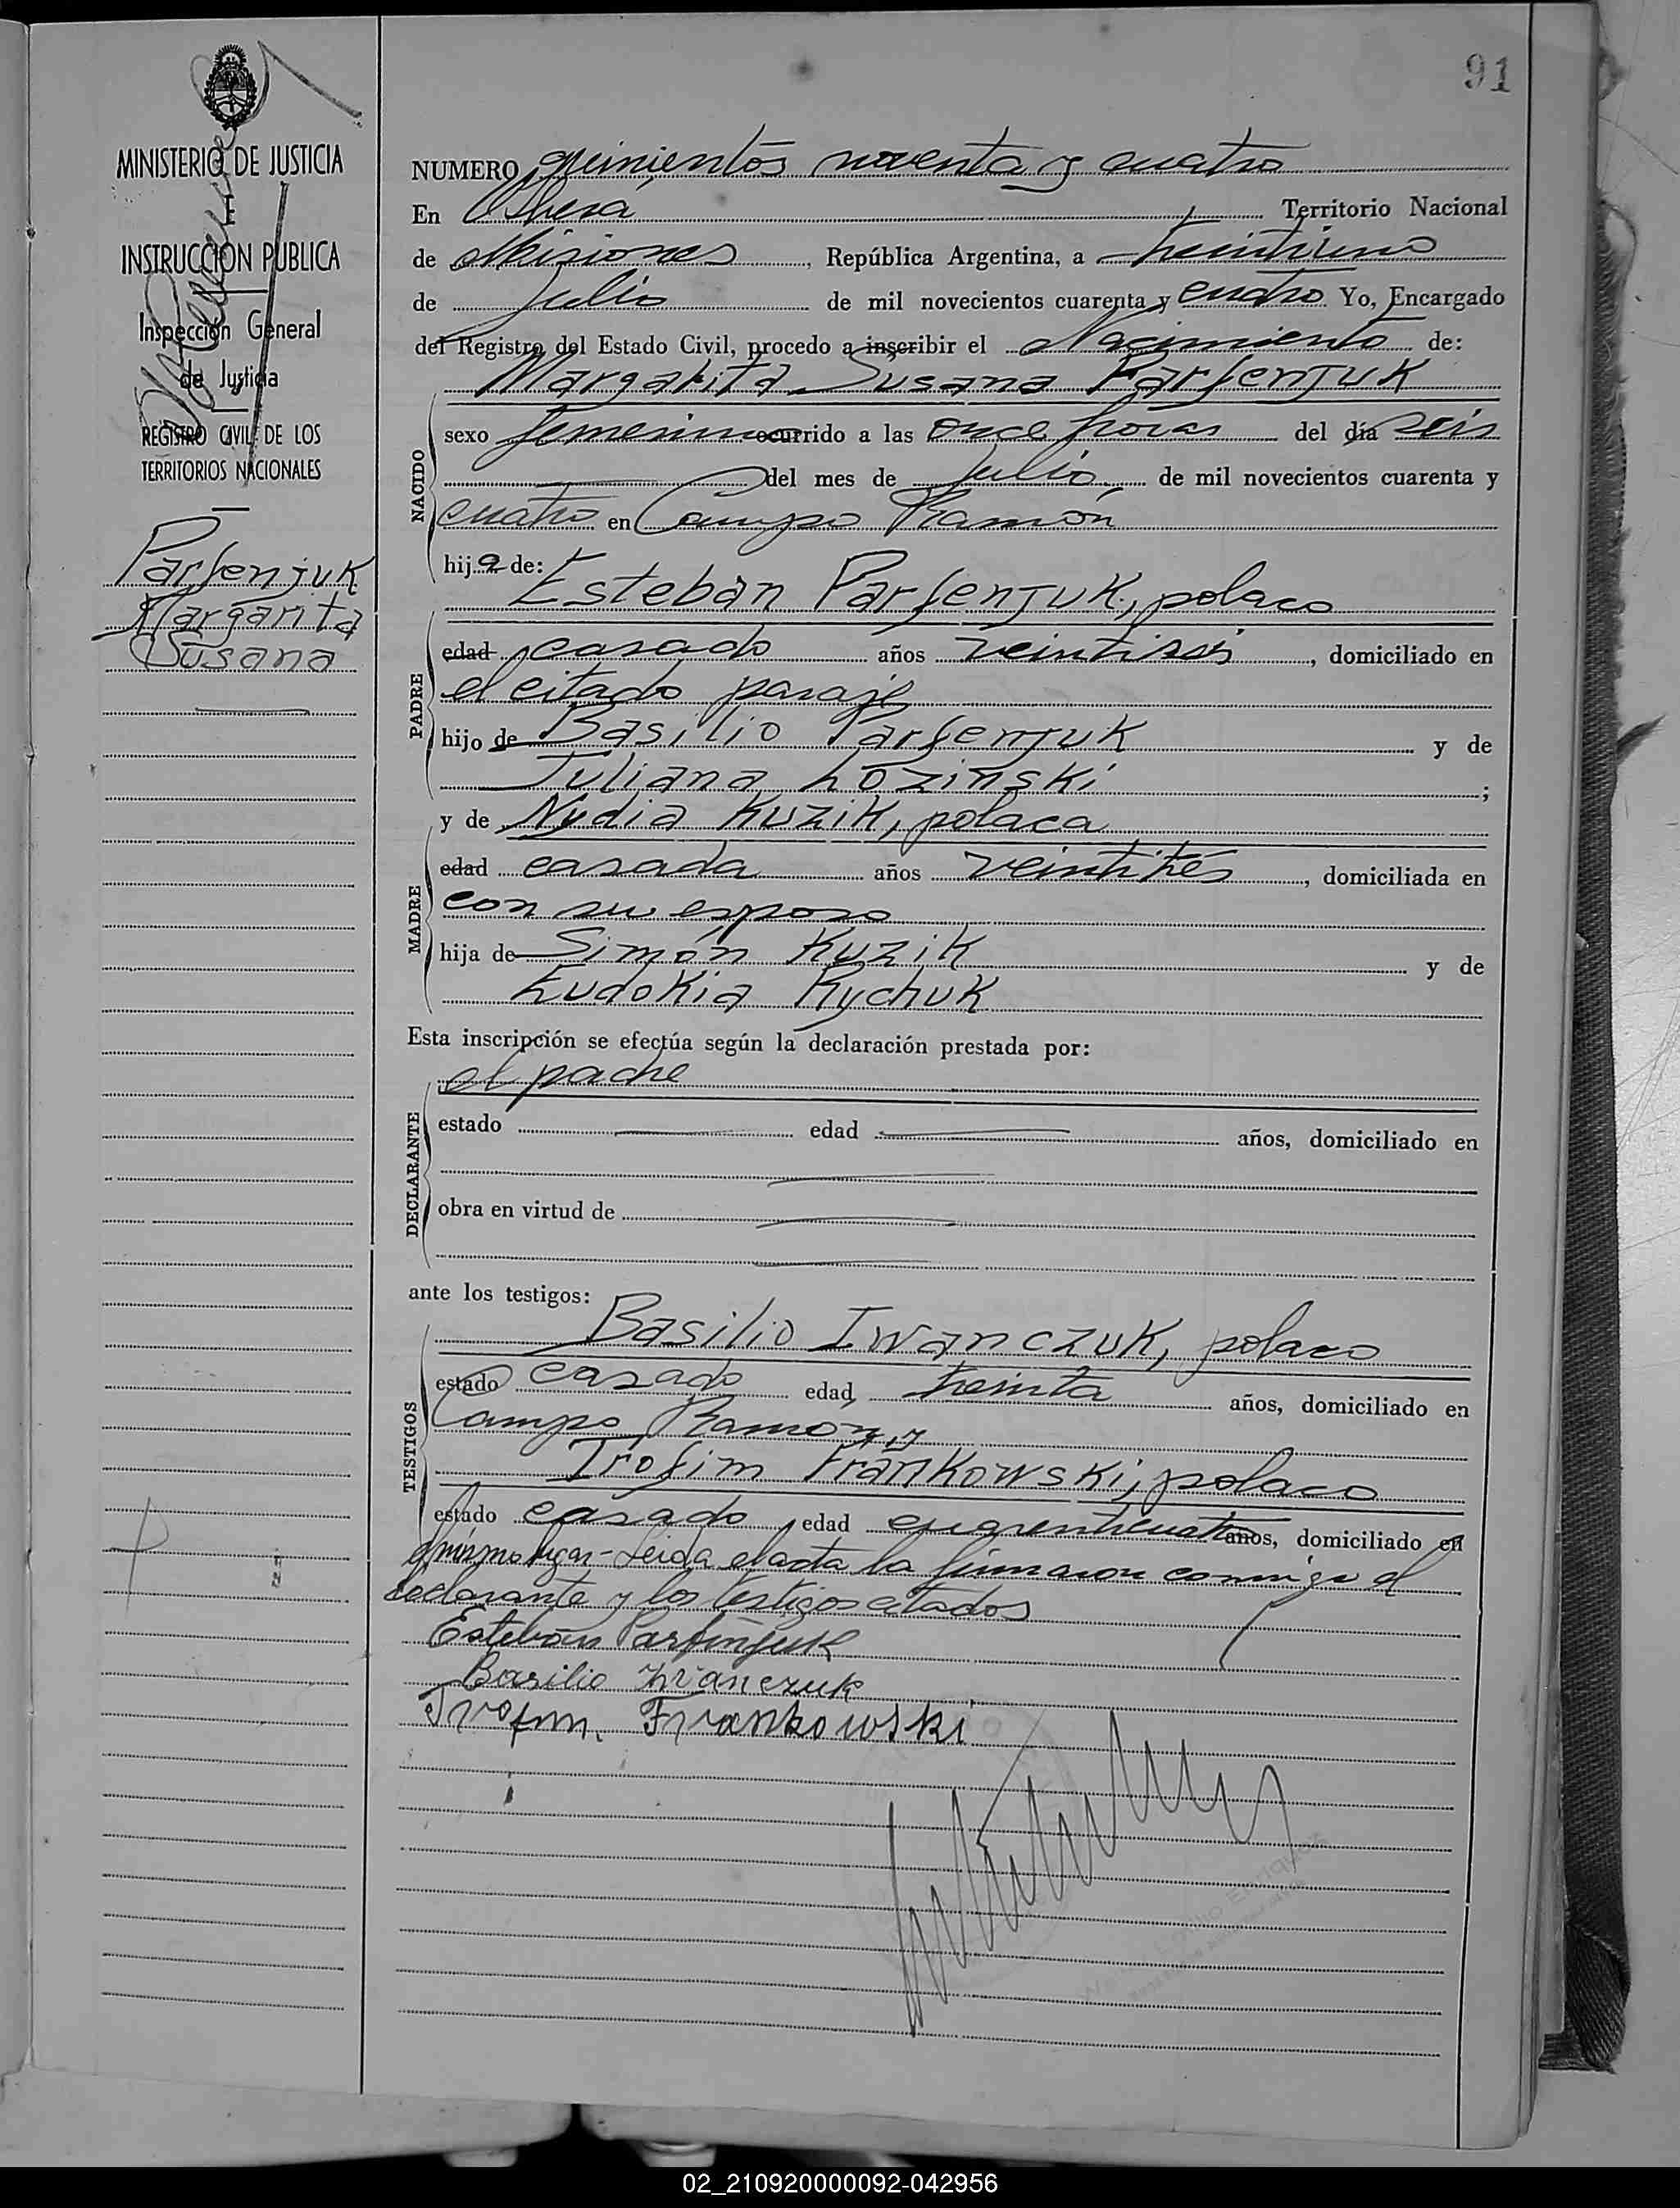 91
MINISTERIO DE JUSTICIA
E
INSTRUCCION PUBLICA
Inspección General
de Justicia
REGISTRO CIVIL DE LOS
TERRITORIOS NACIONALES
Parfenjuk
Margarita
Susana
NUMERO quinientos noventa y cuatro
En Obera Territorio Nacional
de Misiones, República Argentina, a treintiuno
de Julio de mil novecientos cuarenta y cuatro Yo, Encargado
del Registro del Estado Civil, procedo a inscribir el Nacimiento de:
Margarita Susana Parfenjuk
NACIDO
sexo femenino ocurrido a las once horas del día seis
del mes de Julio de mil novecientos cuarenta y
cuatro en Campo Ramón
hija de:
Esteban Parfenjuk, polaco
PADRE
edad casado años veintiseis, domiciliado en
el citado paraje
hijo de Basilio Parfenjuk y de
Juliana Lozinski;
y de Nydia Kuzik, polaca
MADRE
edad casada años veintitrés, domiciliada en
con su esposo
hija de Simón Kuzik y de
Eudokia Rychuk
Esta inscripción se efectúa según la declaración prestada por:
el padre
DECLARANTE
estado edad años, domiciliado en
obra en virtud de
ante los testigos:
Basilio Iwanczuk, polaco
TESTIGOS
estado casado edad treinta años, domiciliado en
Campo Ramon, y
Trofim Frankowski, polaco
estado casado edad cuarenticuatro años, domiciliado en
el mismo lugar - Leida el acta la firmaron conmigo el
declarante y los testigos citados
Esteban Parfenjuk
Basilio Iwanczuk
Trofim. Frankowski
02_210920000092-042956